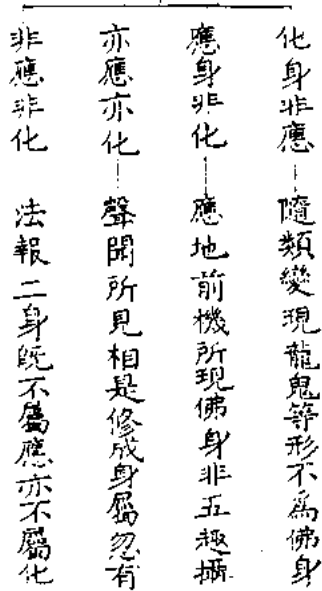 化身非應—隨類變現龍鬼等形不為佛身
應身非化—應地前機所現佛身非五趣攝
亦應亦化—聲聞所見相是修成身屬忽有
非應非化 法報二身既不屬應亦不屬化